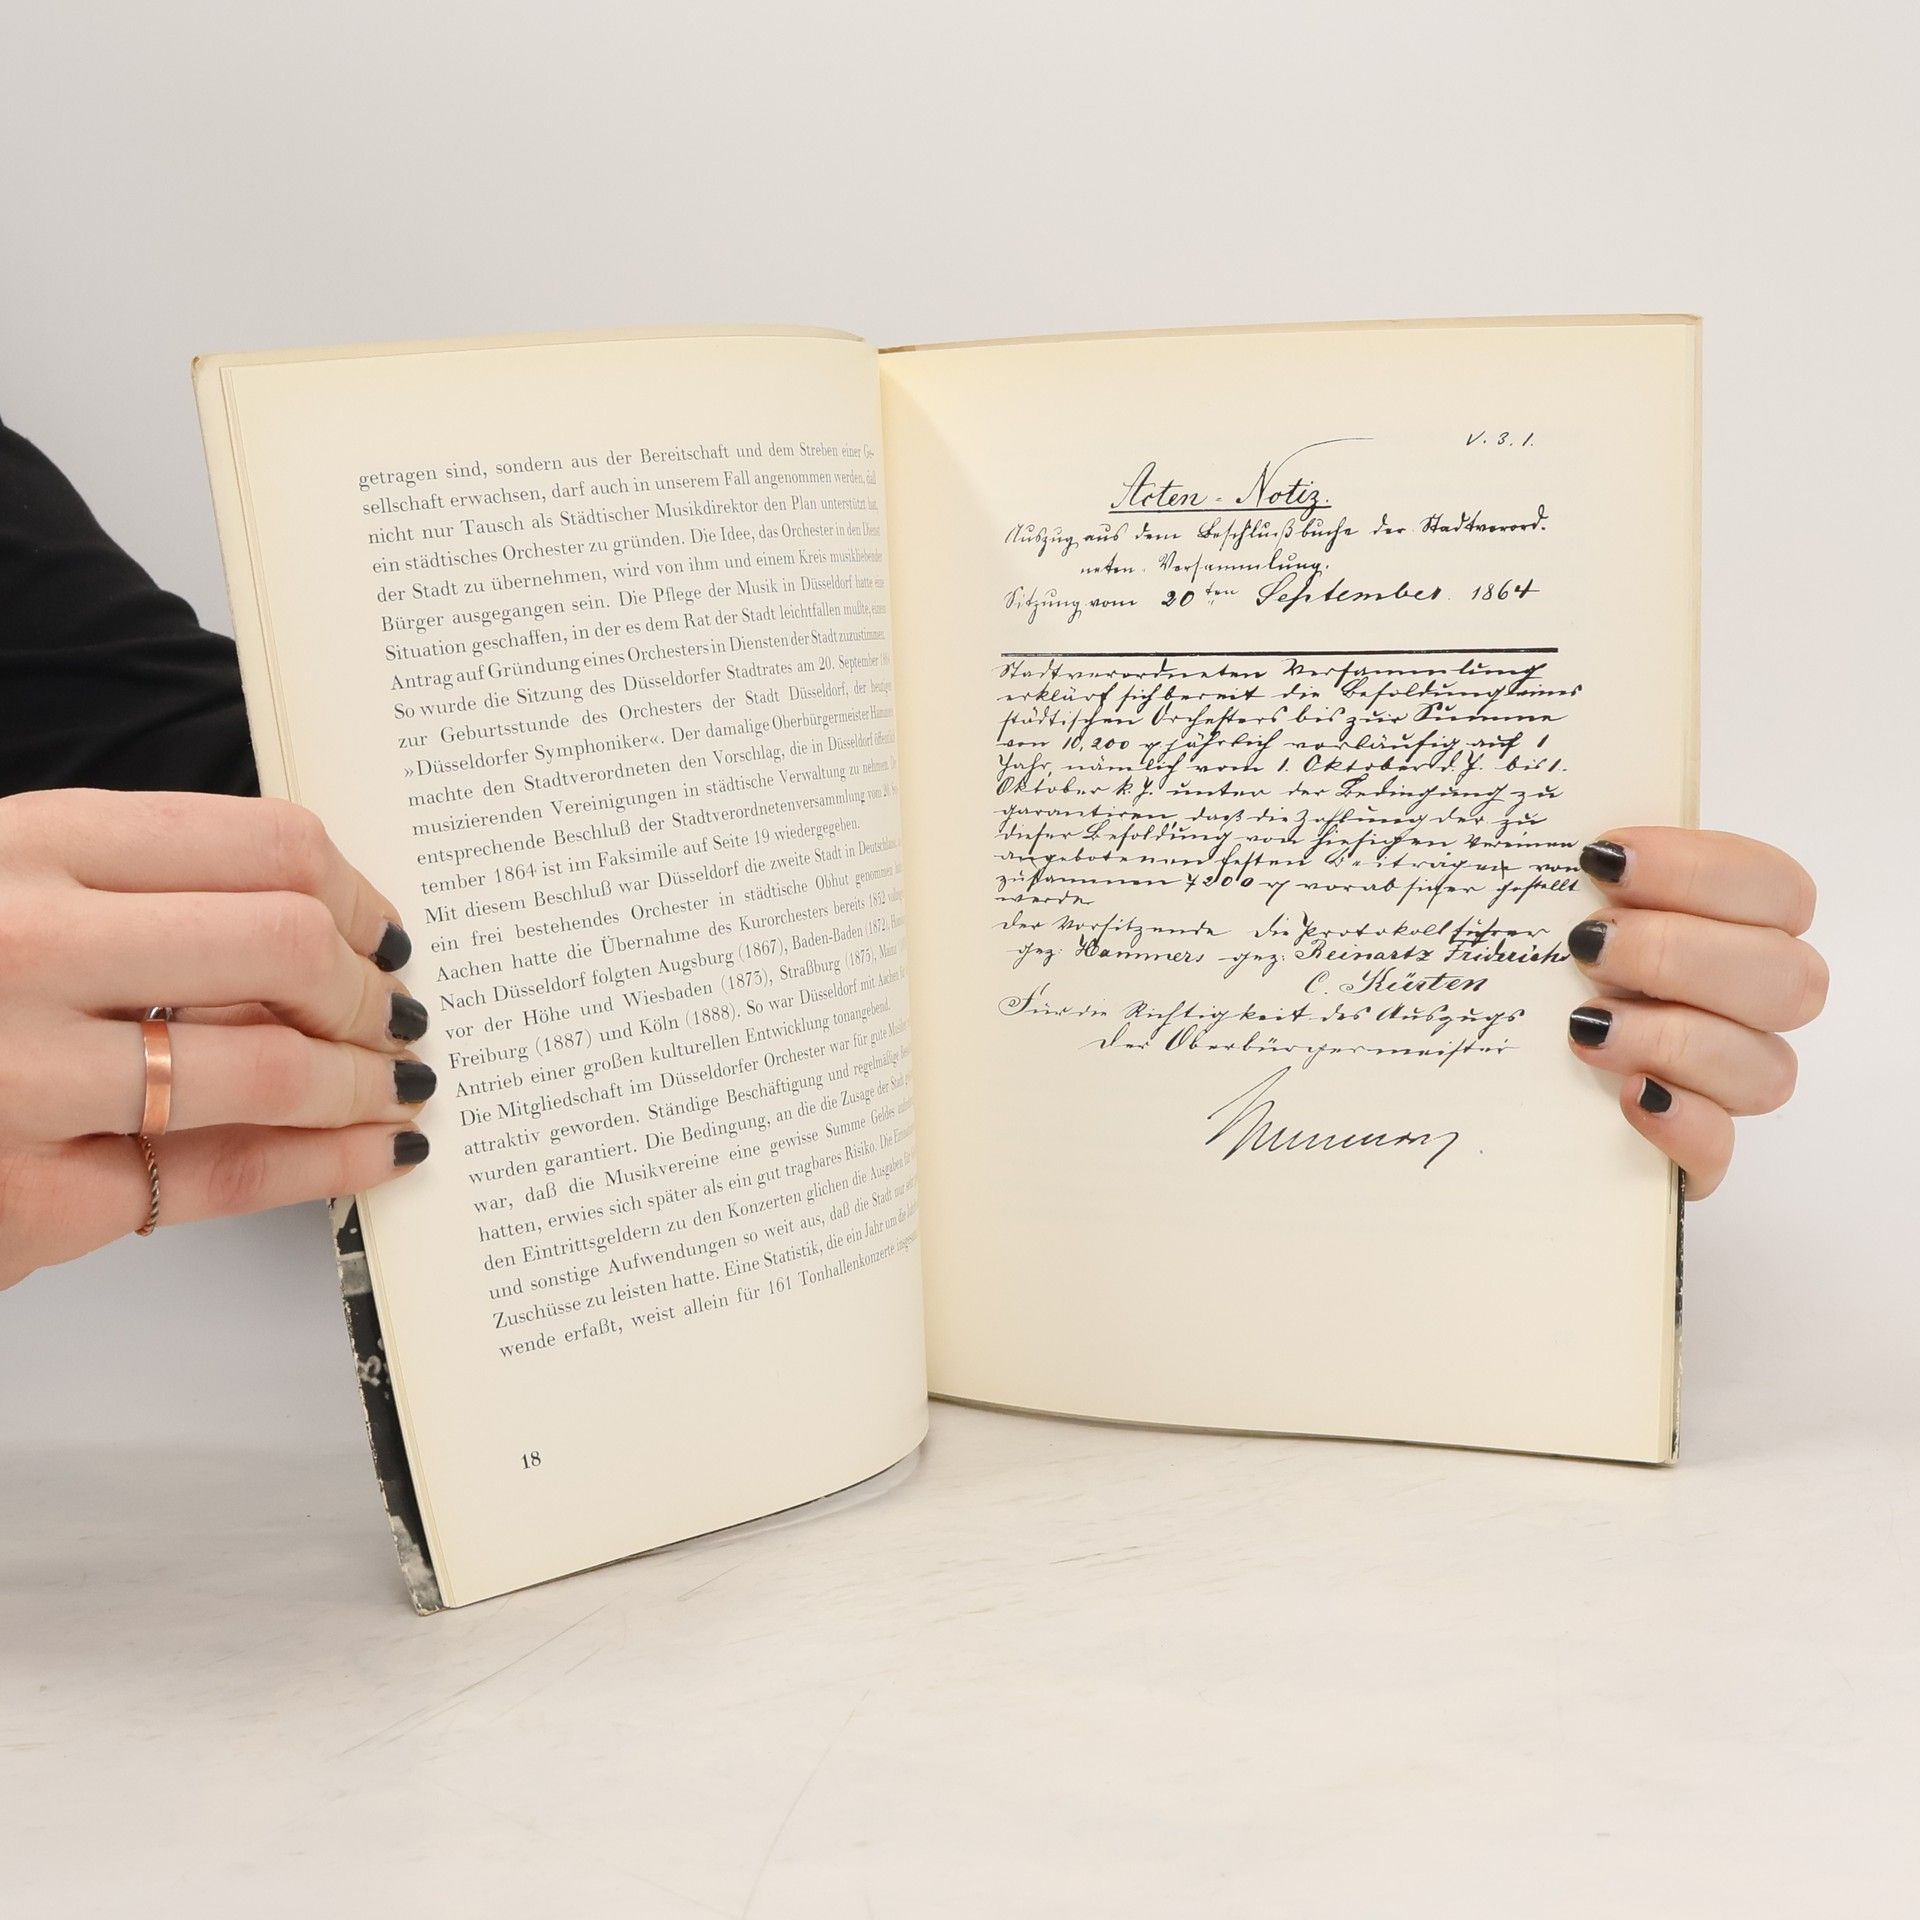 getragen sind, sondern aus der Bereitschaft und dem Streben einer Ge-
sellschaft erwachsen, darf auch in unserem Fall angenommen werden, daß
nicht nur Tausch als Städtischer Musikdirektor den Plan unterstützt hat,
ein städtisches Orchester zu gründen. Die Idee, das Orchester in den Dienst
der Stadt zu übernehmen, wird von ihm und einem Kreis musikliebender
Bürger ausgegangen sein. Die Pflege der Musik in Düsseldorf hatte eine
Situation geschaffen, in der es dem Rat der Stadt leichtfallen mußte, einem
Antrag auf Gründung eines Orchesters in Diensten der Stadt zuzustimmen.
So wurde die Sitzung des Düsseldorfer Stadtrates am 20. September 1864
zur Geburtsstunde des Orchesters der Stadt Düsseldorf, der heutigen
»Düsseldorfer Symphoniker«. Der damalige Oberbürgermeister Hammers
machte den Stadtverordneten den Vorschlag, die in Düsseldorf öffentlich
musizierenden Vereinigungen in städtische Verwaltung zu nehmen. Der
entsprechende Beschluß der Stadtverordnetenversammlung vom 20. Sep-
tember 1864 ist im Faksimile auf Seite 19 wiedergegeben.
Mit diesem Beschluß war Düsseldorf die zweite Stadt in Deutschland,
ein frei bestehendes Orchester in städtische Obhut genommen
Aachen hatte die Übernahme des Kurorchesters bereits 1852
Nach Düsseldorf folgten Augsburg (1867), Baden-Baden (1872),
vor der Höhe und Wiesbaden (1873), Straßburg (1875), Mainz
Freiburg (1887) und Köln (1888). So war Düsseldorf mit Aachen
Antrieb einer großen kulturellen Entwicklung tonangebend.
Die Mitgliedschaft im Düsseldorfer Orchester war für gute Musiker
attraktiv geworden. Ständige Beschäftigung und regelmäßige
wurden garantiert. Die Bedingung, an die die Zusage der Stadt
war, daß die Musikvereine eine gewisse Summe Geldes
hatten, erwies sich später als ein gut tragbares Risiko. Die
den Eintrittsgeldern zu den Konzerten glichen die Ausgaben für
und sonstige Aufwendungen so weit aus, daß die Stadt nur
Zuschüsse zu leisten hatte. Eine Statistik, die ein Jahr um die
wende erfaßt, weist allein für 161 Tonhallenkonzerte
18
V. 3. 1.
Acten-Notiz.
Auszug aus dem Beschlußbuche der Stadtverord-
neten-Versammlung.
Sitzung vom 20ten September 1864
Stadtverordneten Versammlung
erklärt sich bereit die Besoldung eines
städtischen Orchesters bis zur Summe
von 10,200 jährlich vorläufig auf 1
Jahr, nämlich vom 1. Oktober d. J. bis 1.
Oktober k. J. unter der Bedingung zu
garantiren, daß die Zahlung der zu
dieser Besoldung von hiesigen Vereinen
angebotenen festen Beiträgen von
zusammen 7200 vorab sicher gestellt
werde
der Vorsitzende die Protokollführer
gez: Hammers gez: Reinartz Friderichs
C. Kürten
Für die Richtigkeit des Auszugs
der Oberbürgermeister